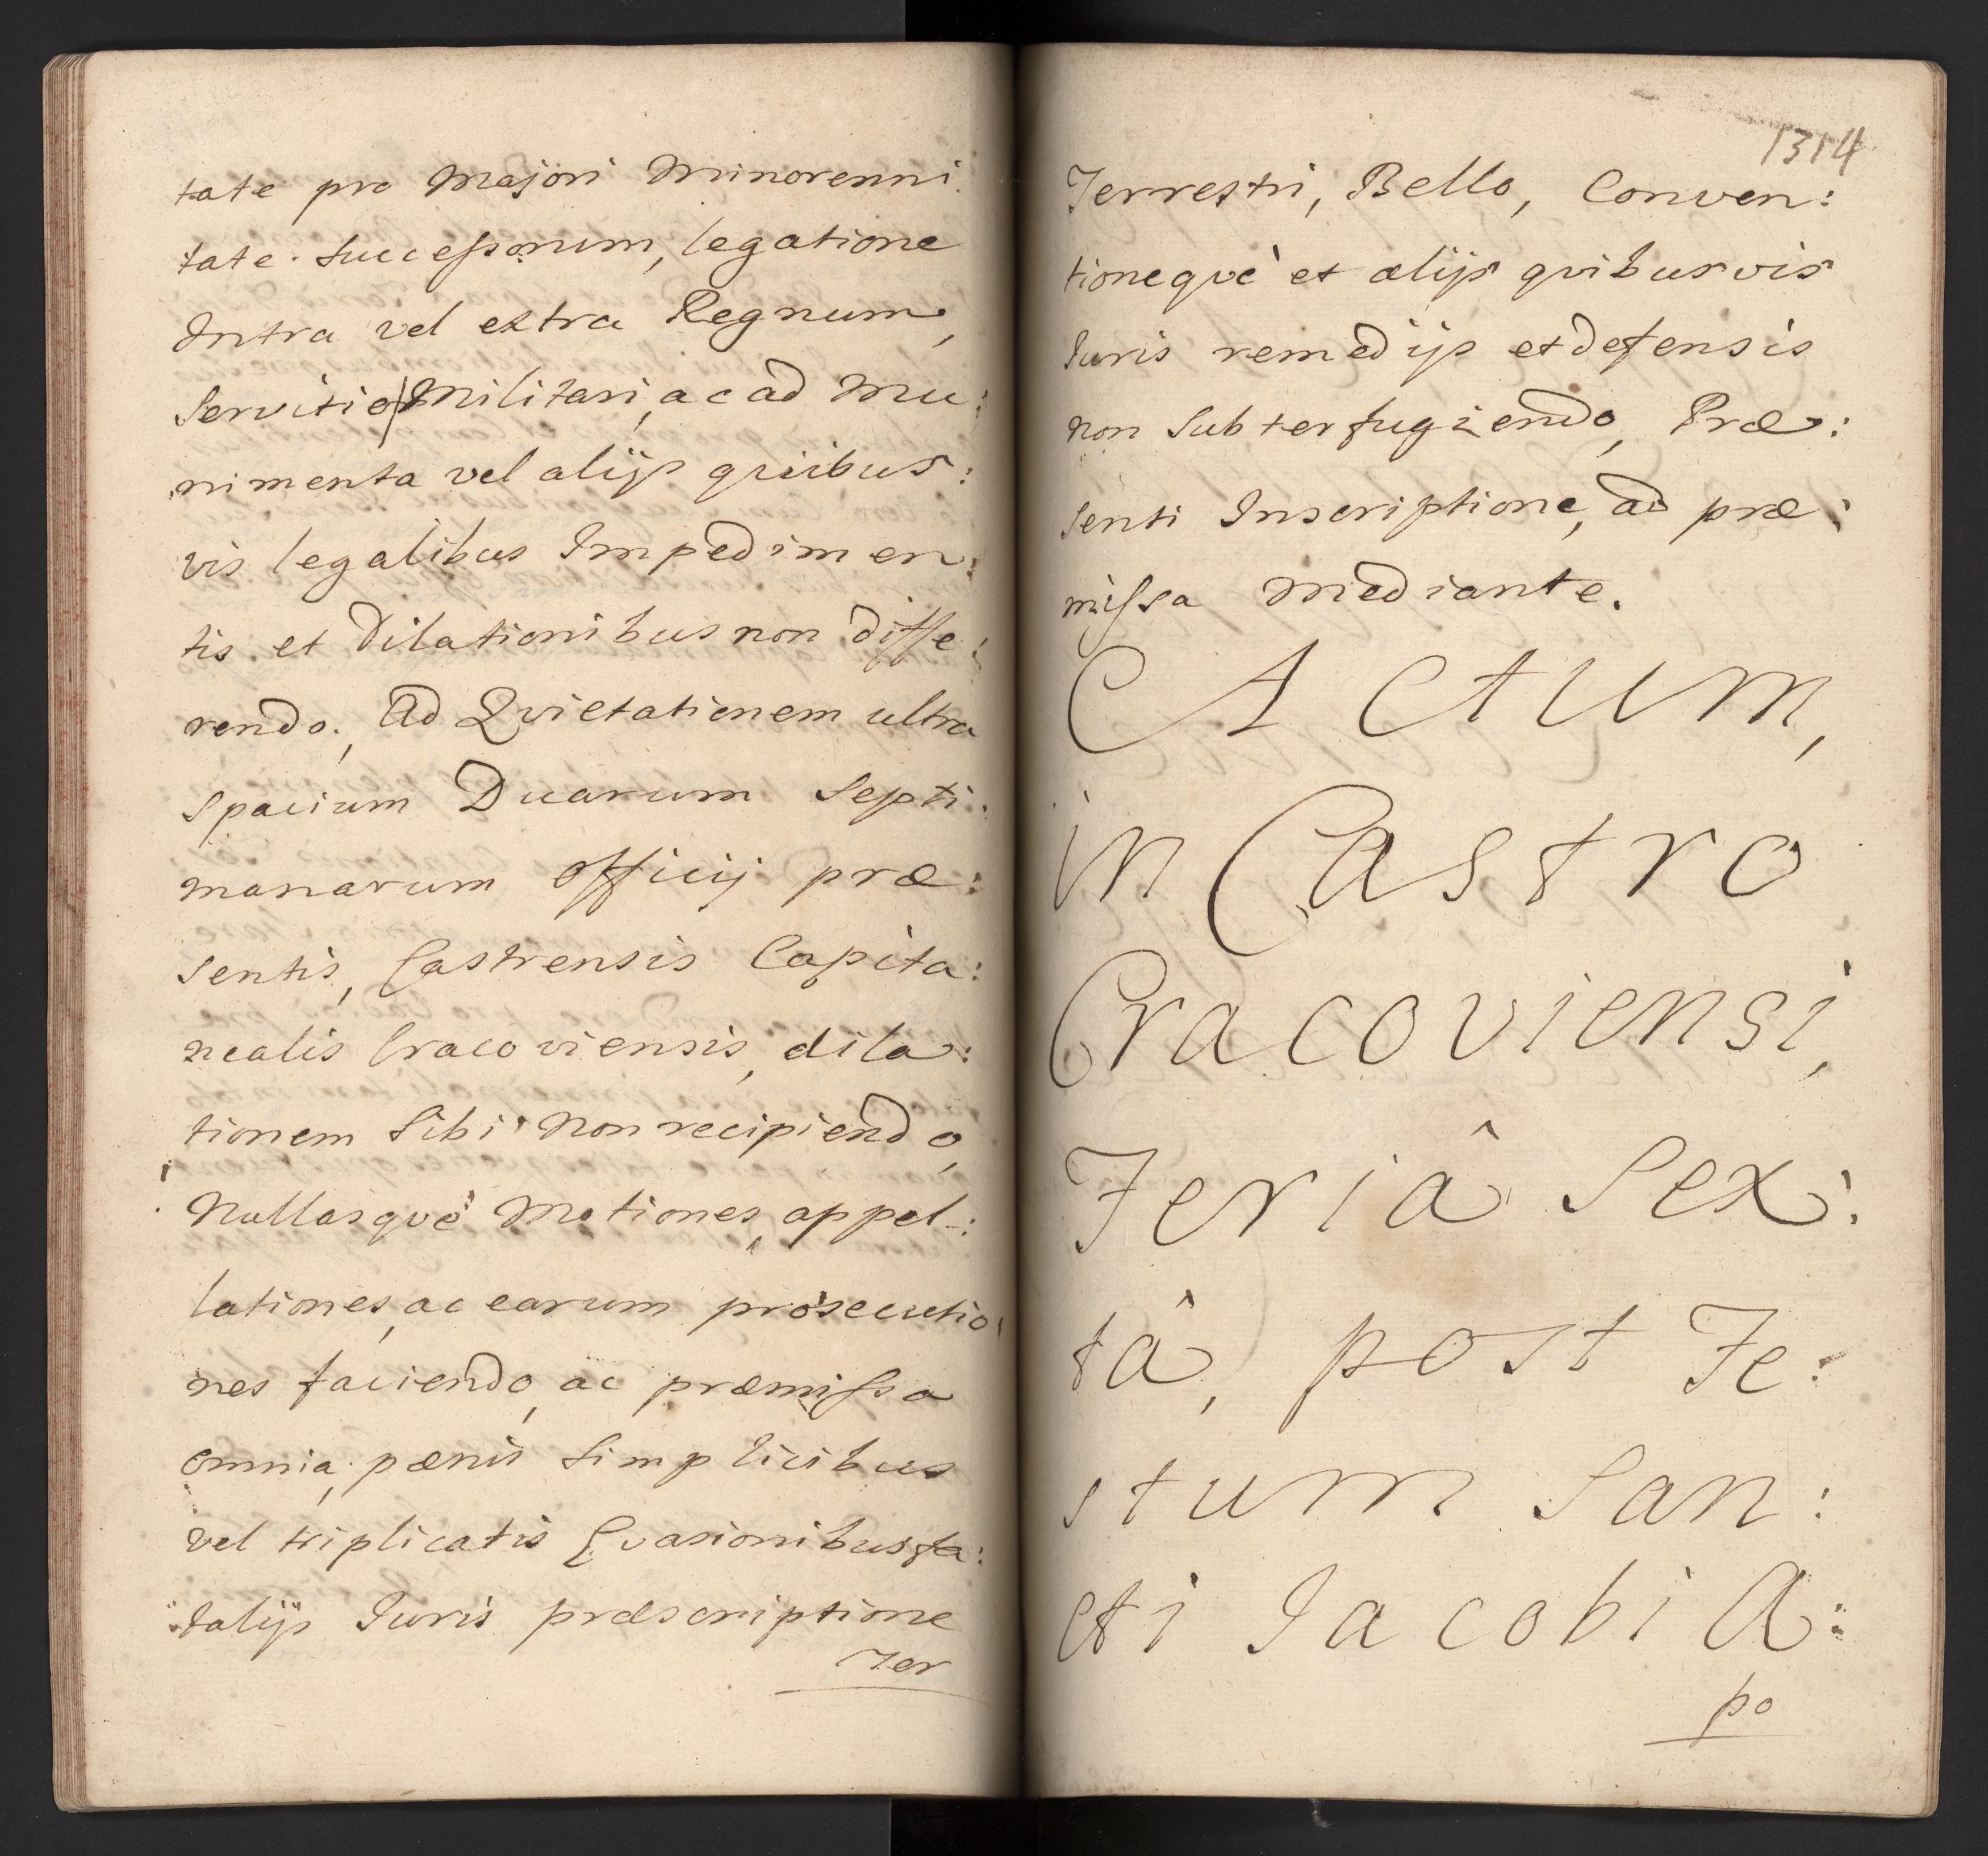 tate pro Majori Minorenni
tate. Successorum, legatione
Intra vel extra Regnum,
Servitio Militari, ac ad Mu:
nimenta vel alijs quibus:
vis legalibus Impedimen:
tis et Dilationibus non diffe:
rendo., Ad Qvietationem ultra
Spacium Duarum Septi:
manarum Officij præ:
sentis, Castrensis Capita:
nealis Cracoviensis, dila:
tionem Sibi non recipiendo,
Nullasqvè Motiones, appel:
lationes, ac earum prosecutio:
nes faciendo, ac præmissa
omnia, pænis Simplicibus
vel triplicatis Evasionibus fa:
talijs Iuris præscriptione
Ter
1314
Terrestri, Bello, Conven:
tioneqvè et alijs qvibusvis
Iuris remedijs et defensis
non Subterfugiendo, Præ:
senti Inscriptione, ad præ:
missa mediante.
Actum,
in Castro
Cracoviensi,
Feriâ Sex:
tâ, post Fe:
stum San:
cti Iacobi A:
po